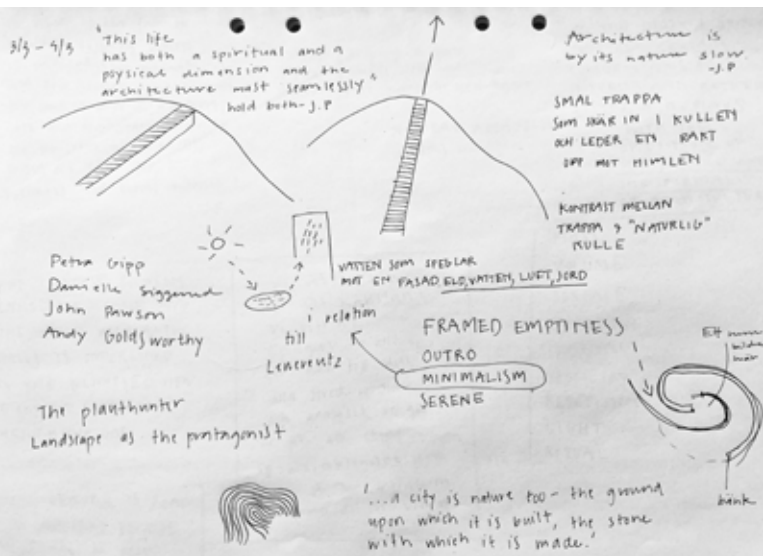 3/3 - 4/3
"This life
has both a spiritual and a
psysical dimension and the
architecture must seamlessly
hold both"- J.P
Architecture is
by its nature slow.
-J.P
SMAL TRAPPA
SOM SKÄR IN I KULLEN
OCH LEDER EN RAKT
UPP MOT HIMLEN
KONTRAST MELLAN
TRAPPA & "NATURLIG"
KULLE
Petra Gipp
Danielle
John Pawson
Andy Goldsworthy
VATTEN SOM SPEGLAR
MOT EN FASAD, ELD, VATTEN, LUFT, JORD
i relation
till
Lewerentz
FRAMED EMPTINESS
OUTRO
MINIMALISM
SERENE
Ett
här
bänk
The planthunter
Landscape as the protagonist
"...a city is nature too - the ground
upon which it is built, the stone
with which it is made."